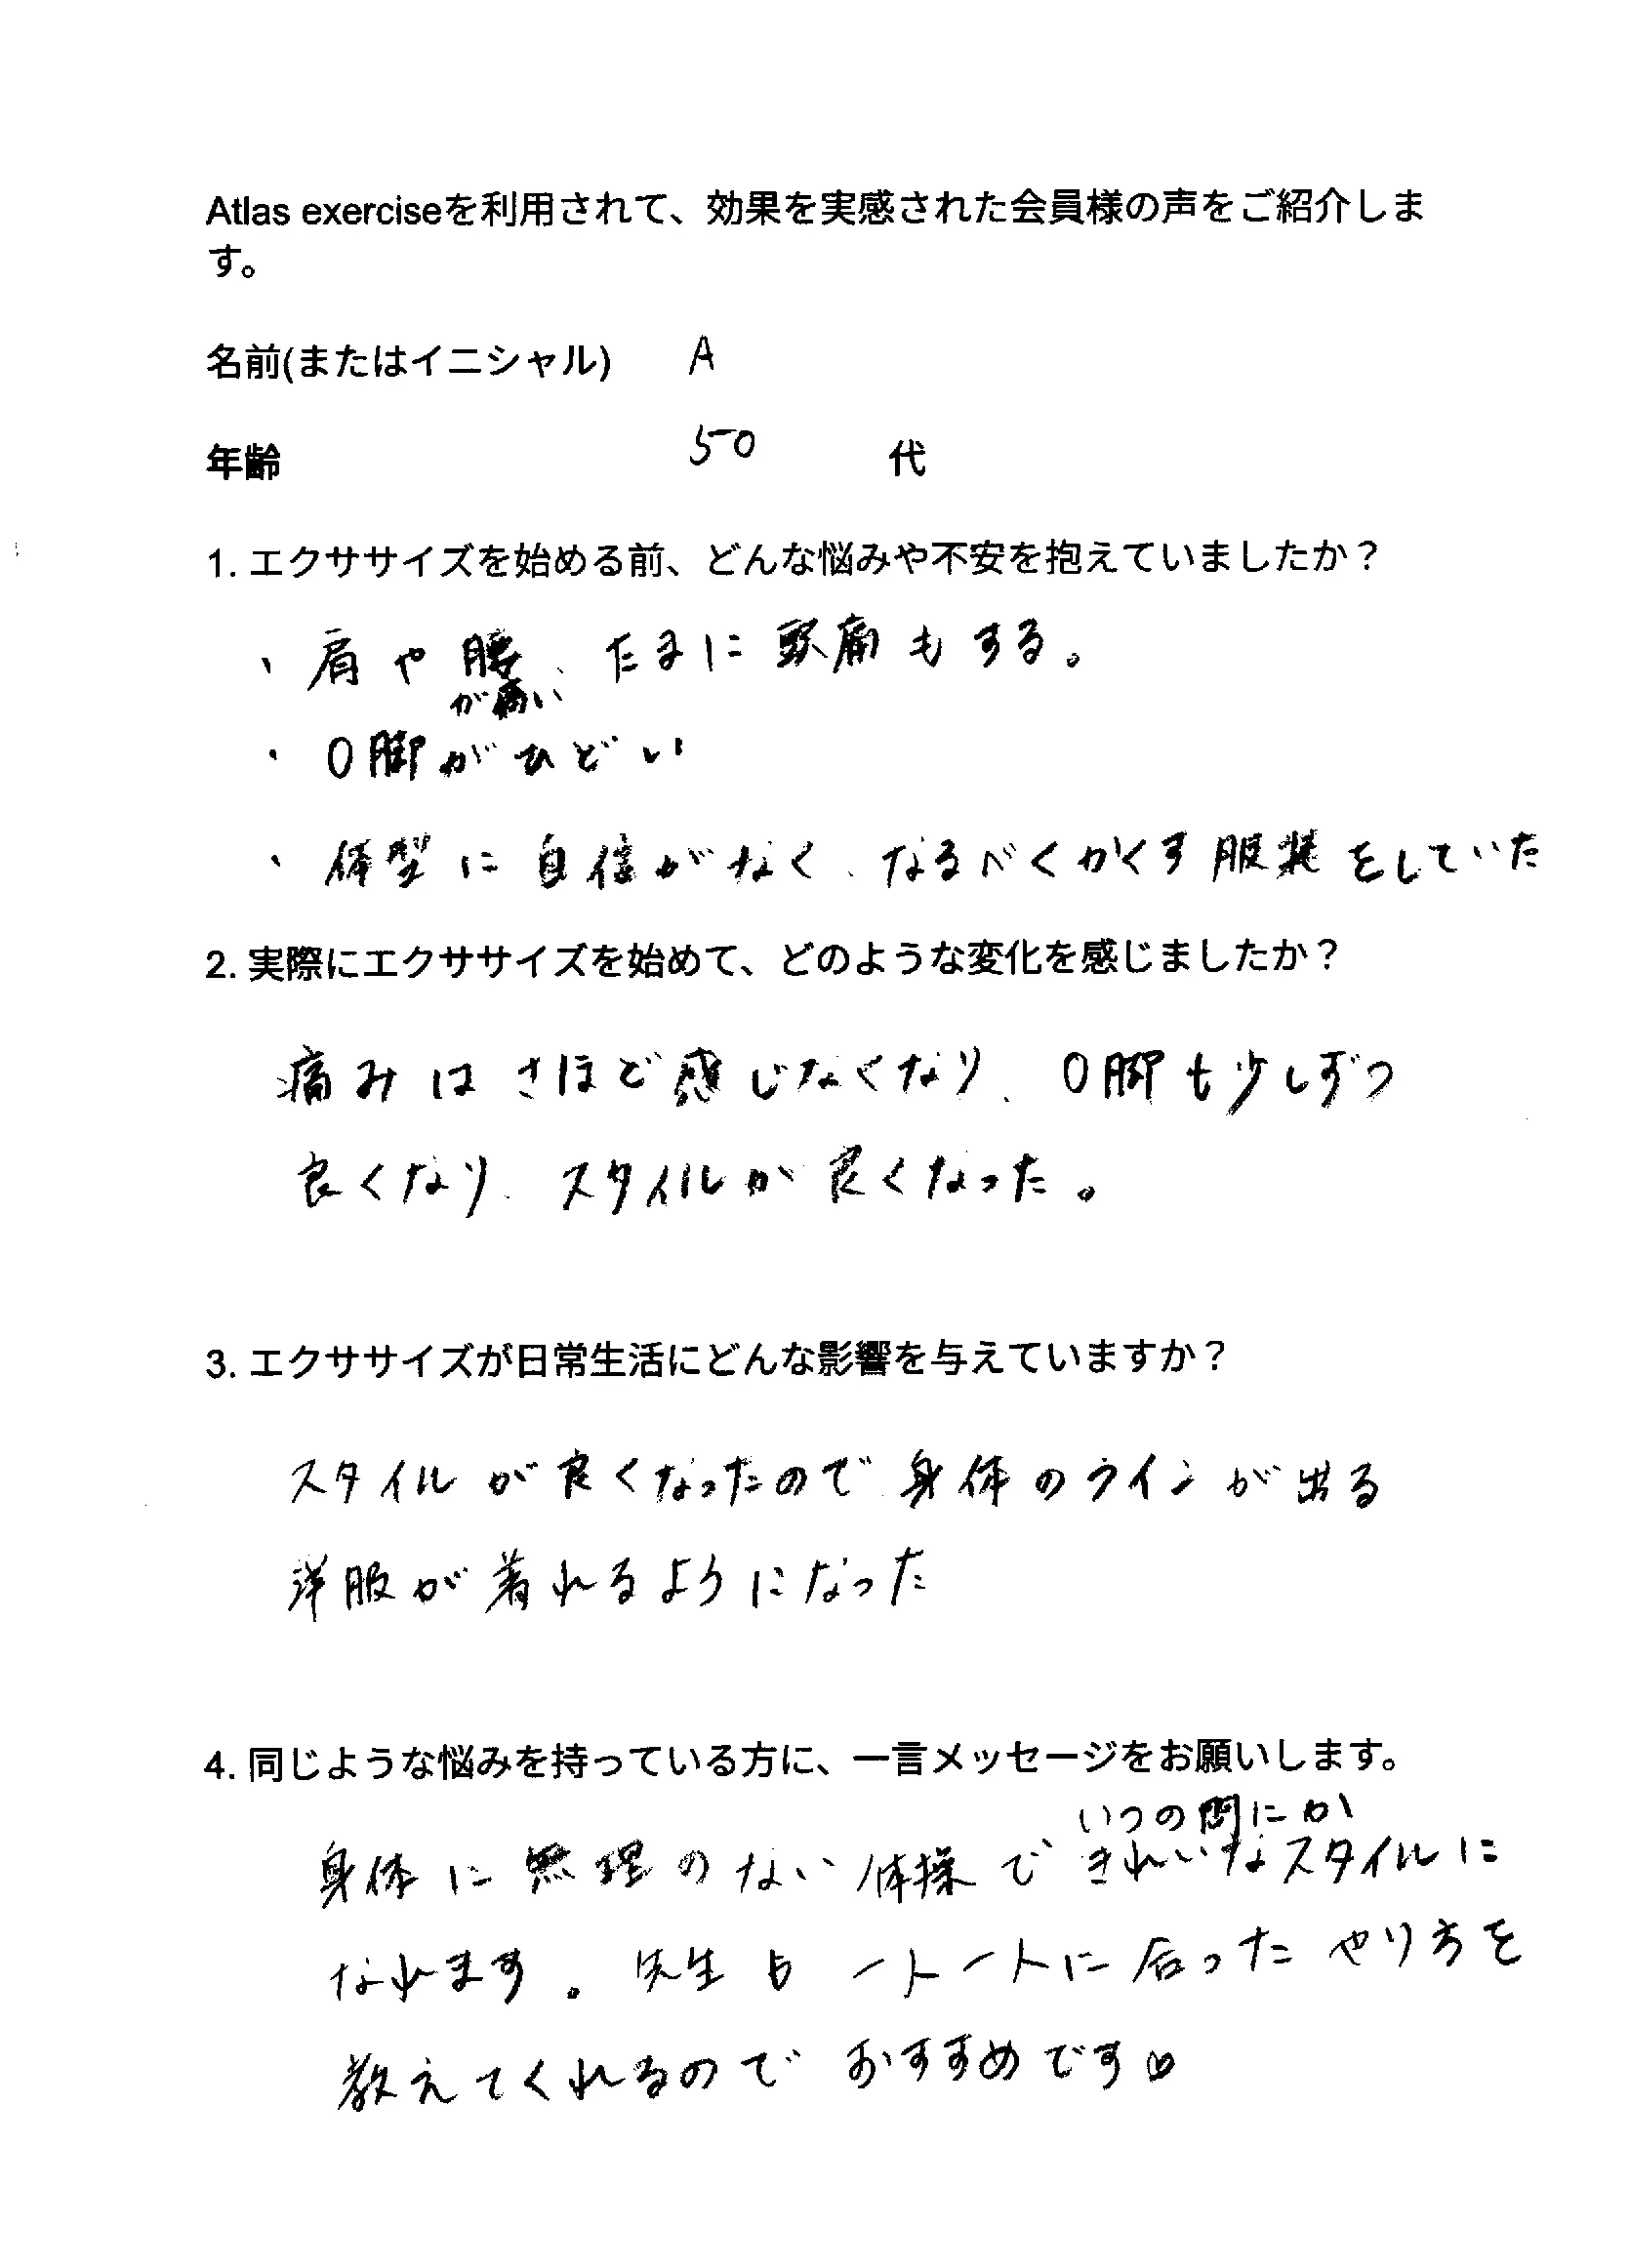 Atlas exerciseを利用されて、効果を実感された会員様の声をご紹介しま
す。
名前(またはイニシャル) A
年齢 50 代
1. エクササイズを始める前、どんな悩みや不安を抱えていましたか？
・肩や腰、たまに頭痛もする。
が痛い
・O脚がひどい
・体型に自信がなく、なるべくかくす服装をしていた
2. 実際にエクササイズを始めて、どのような変化を感じましたか？
痛みはさほど感じなくなり、O脚も少しずつ
良くなり、スタイルが良くなった。
3. エクササイズが日常生活にどんな影響を与えていますか？
スタイルが良くなったので身体のラインが出る
洋服が着れるようになった
4. 同じような悩みを持っている方に、一言メッセージをお願いします。
いつの間にか
身体に無理のない体操できれいなスタイルに
なれます。先生も一人一人に合ったやり方を
教えてくれるのでおすすめです♡